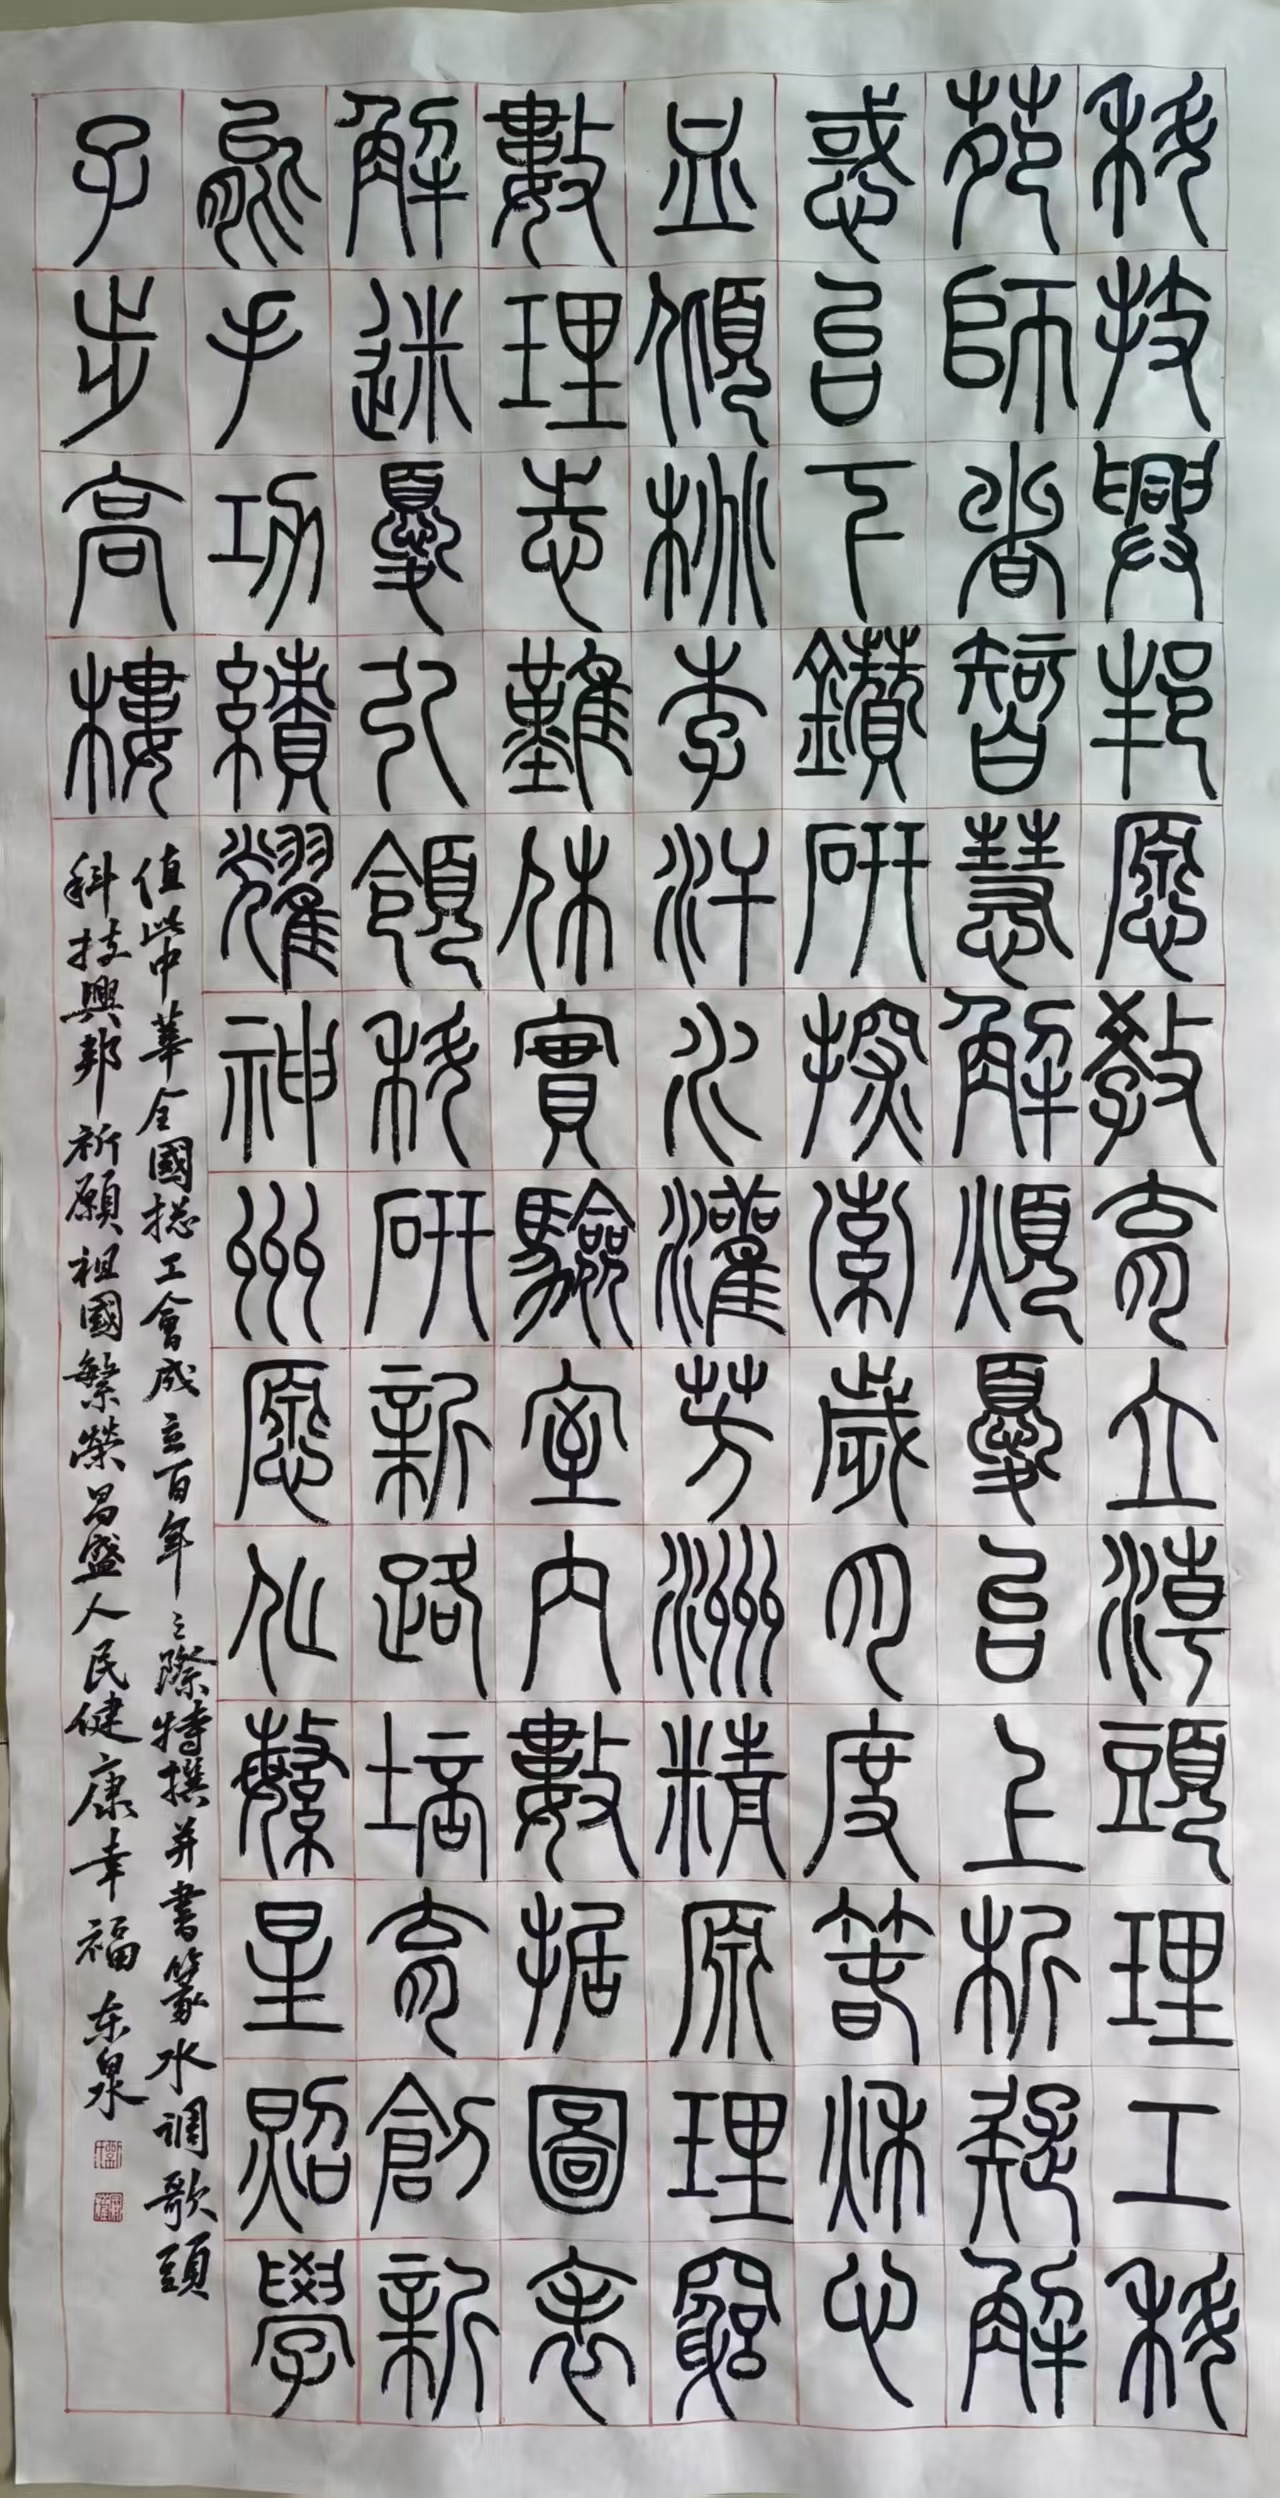 科技興邦愿教育立潮頭理工科
苑師者智慧解煩憂以上析疑解
惑以下鑽研探索歲月度春秋心
血傾桃李汗水灌芳洲精原理窮
數理志難休實驗室內數據圖表
解迷憂引領科研新路培育創新
能手功績耀神州愿化繁星照學
子步高樓
值此中華全國捴工會成立百年之際特撰并書篆水调歌頭
科技興邦祈願祖國繁榮昌盛人民健康幸福 东泉